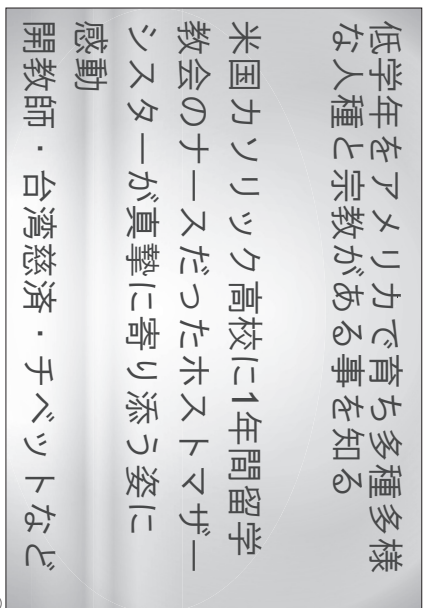 低学年をアメリカで育ち多種多様
な人種と宗教がある事を知る
米国カソリック高校に1年間留学
教会のナースだったホストマザー
シスターが真摯に寄り添う姿に
感動
開教師・台湾慈済・チベットなど